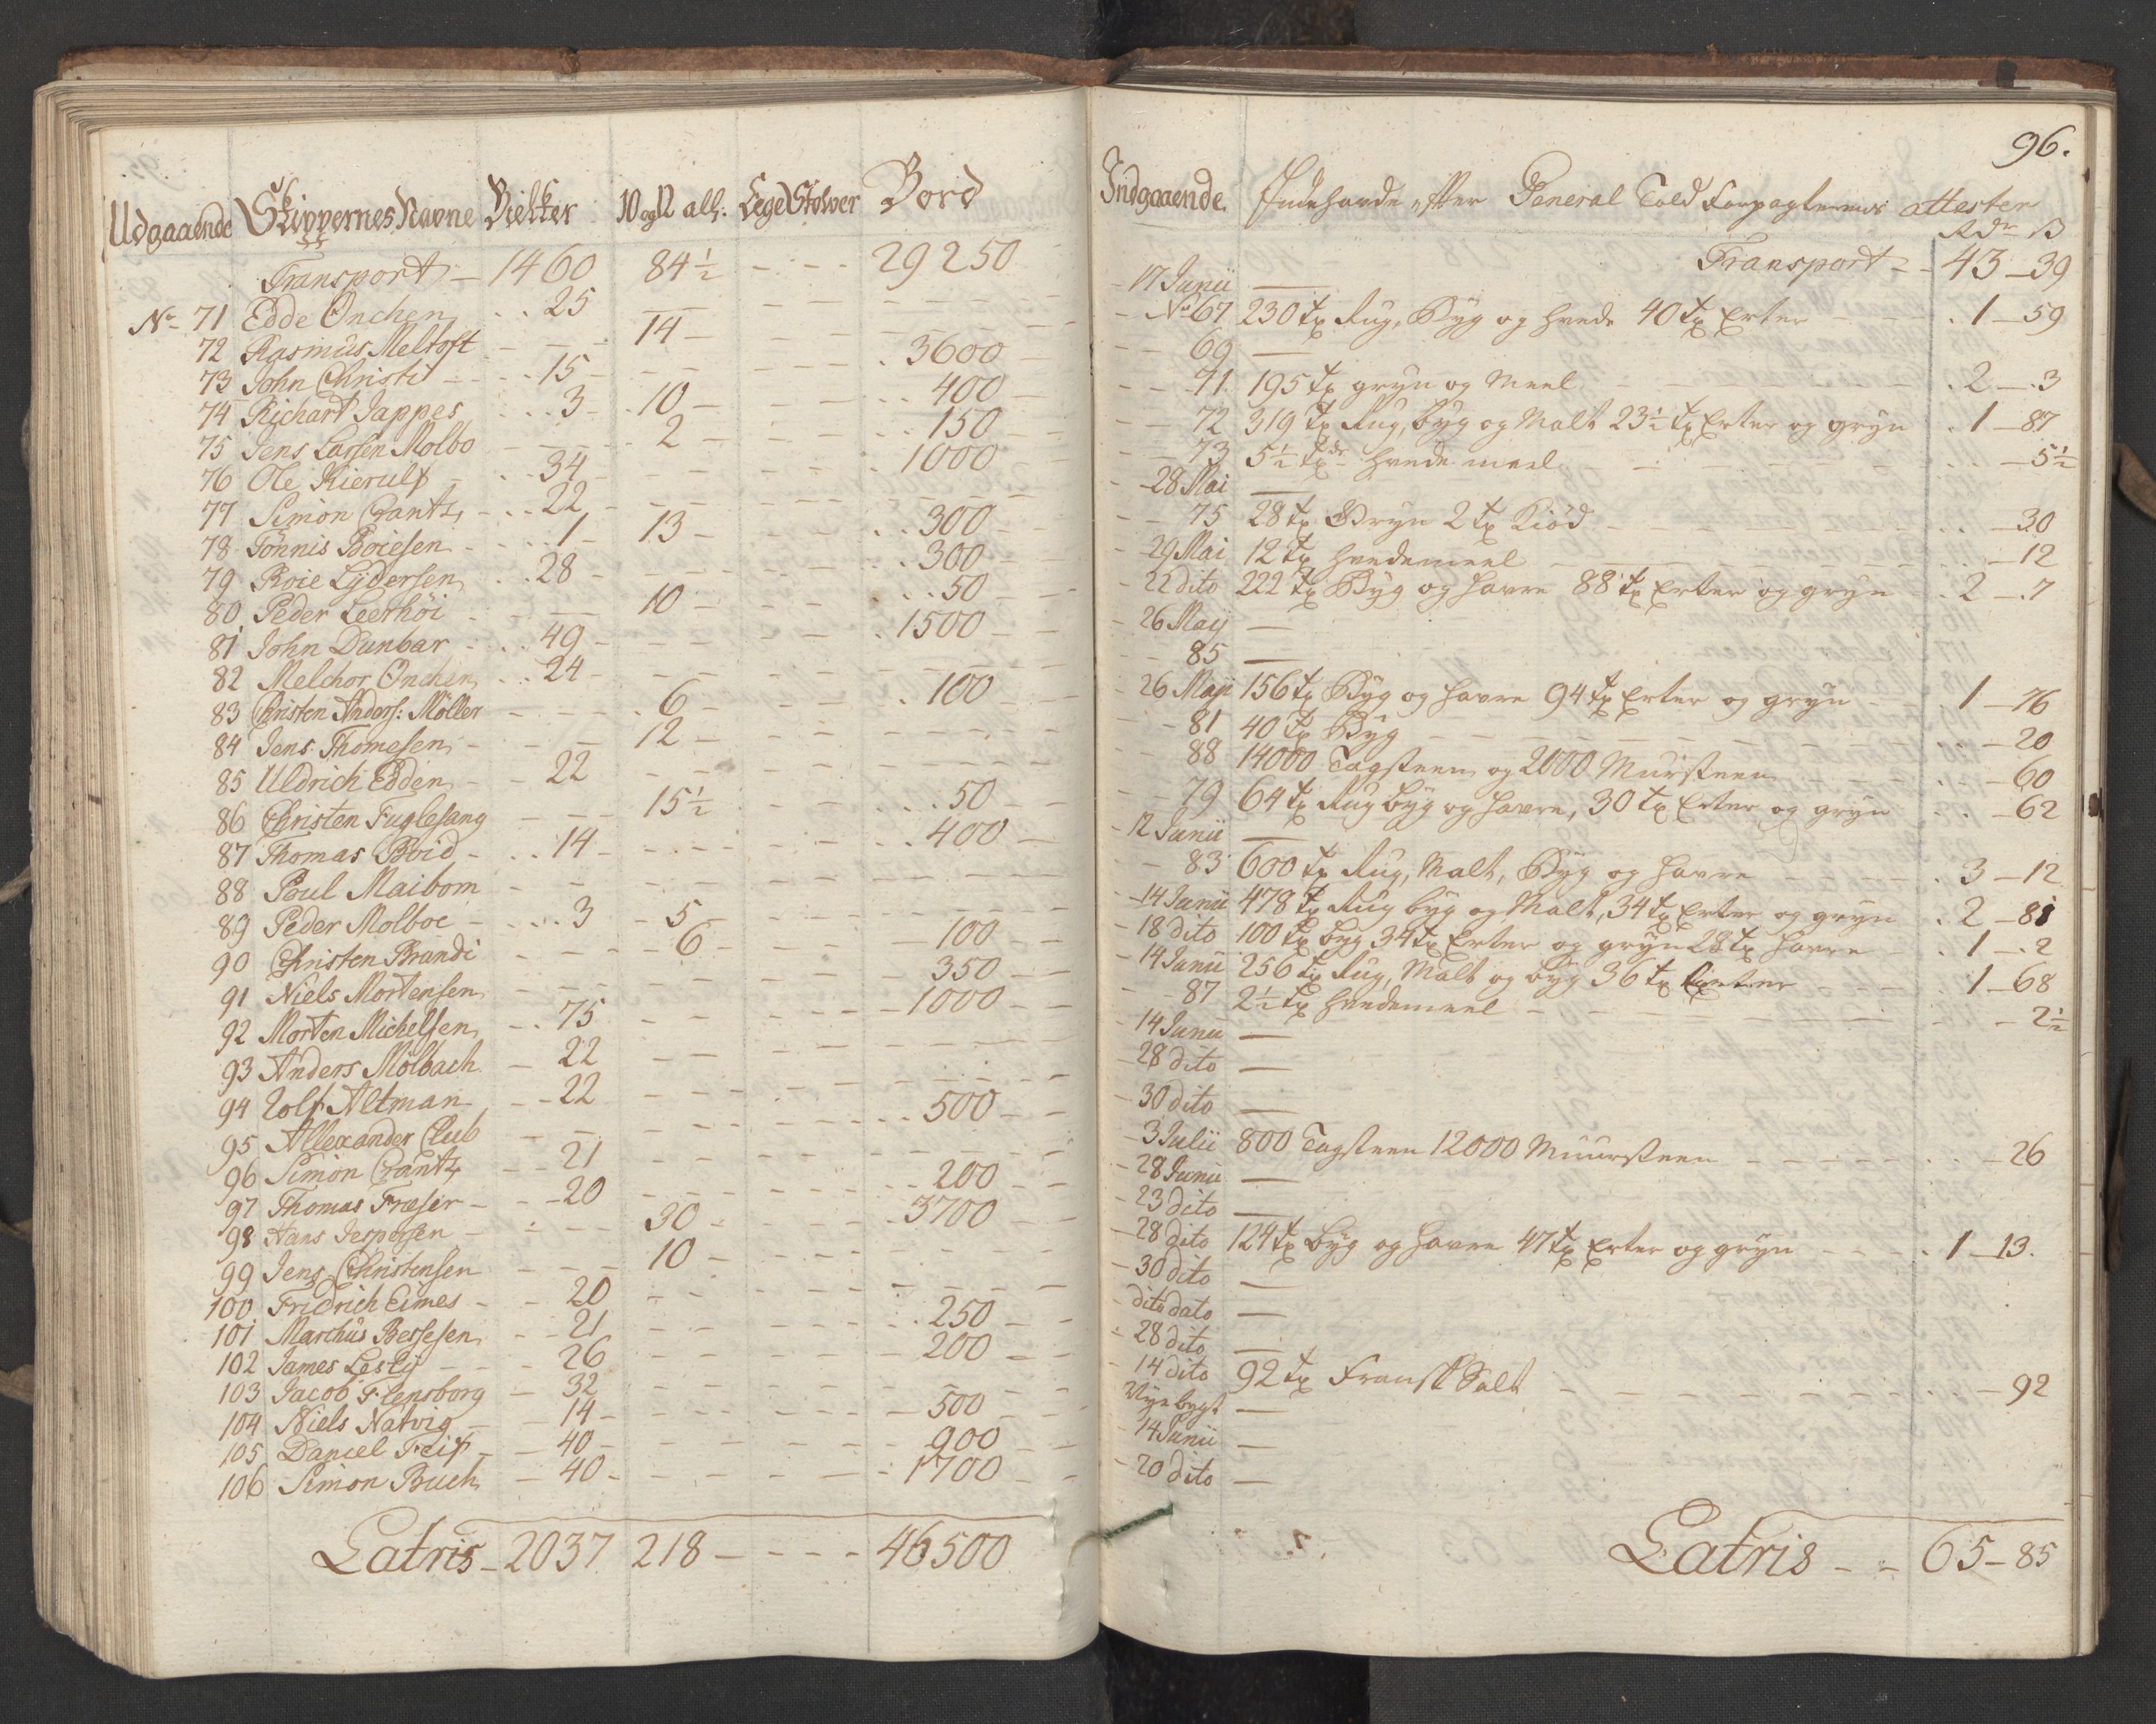 Udgaaende Skippernes Navne Bielker 10 og 12 all: Lege Stolper Bord
Transport - 1460 84½ - - - 29250
No 71 Edde Onchen .. 25
72 Rasmus Meltoft 14 - 3600
73 John Christi 15 - 400
74 Richart Jappes 3 - 10 - 150
75 Jens Larsen Molbo 2 - 1000
76 Ole Kierulf 34
77 Simon Crantz 22 - 300
78 Tönnis Boiesen 1 - 13 - 300
79 Boie Lydersen 28 - 50
80 Peder Leerhöi 10 - 1500
81 John Dunbar 49
82 Melchor Onchen 24 - 100
83 Christen Anders: Möller 6
84 Jens Thomesen 12
85 Uldrich Edden 22 - 50
86 Christen Fuglesang 15½ - 400
87 Thomas Boid 14
88 Poul Maibom
89 Peder Molboe 3 - 5 - 100
90 Christen Brandi 6 - 350
91 Niels Mortensen 1000
92 Morten Michelsen 75
93 Anders Molbach 22
94 Rolf Altman 22 - 500
95 Allexander Club
96 Simon Crantz 21 - 200
97 Thomas Fræser 20 - 3700
98 Hans Jespersen 30
99 Jens Christensen 10
100 Fridrich Eimes 20 - 250
101 Marchus Bersesen 21 - 200
102 James Lesly 26
103 Jacob Flensborg 32 - 500
104 Niels Natvig 14 - 900
105 Daniel Feif 40 - 1700
106 Simon Buch 40
Latris - 2037 218 - - - - 46500
96.
Indgaaende. Indehavde efter General Told Forpagternes attester
Rdr ß
Transport - - 43 - 39
17 Junii —
No 67 230 tr Rug, Byg og Hvede 40 tr Erter 1 - 59
69 —
71 195 tr gryn og Meel 2 - 3
72 319 tr Rug, byg og Malt 23½ tr Erter og gryn 1 - 87
73 5½ tdr hvede meel - 5½
28 Mai —
75 28 tr Gryn 2 tr Kiöd - 30
29 Mai 12 tr hvedemeel - 12
22 dito 222 tr Byg og havre 88 tr Erter og gryn 2 - 7
26 Maij —
85 —
26 Maji 156 tr Byg og havre 94 tr Erter og gryn 1 - 76
81 40 tr Byg - 20
88 14000 Tagsteen og 2000 Mursteen - 60
79 64 tr Rug byg og havre, 30 tr Erter og gryn - 62
12 Junii —
83 600 tr Rug, Malt, Byg og havre 3 - 12
14 Junii 478 tr Rug byg og Malt, 34 tr Erter og gryn 2 - 81
18 dito 100 tr byg 34 tr Erter og gryn 28 tr havre 1 - 2
14 Junii 256 tr Rug, Malt og byg 36 tr Erter 1 - 68
87 2½ tr hvedemeel - 2½
14 Junii —
28 dito —
30 dito —
3 Julii 800 Tagsteen 12000 Muursteen - 26
28 Junii —
23 dito —
28 dito 124 tr byg og havre 47 tr Erter og gryn 1 - 13.
30 dito —
dito dato —
28 dito —
14 dito 92 tr Fransk Salt - 92
Nye bygt —
14 Junii —
20 dito —
Latris - - 65 - 85